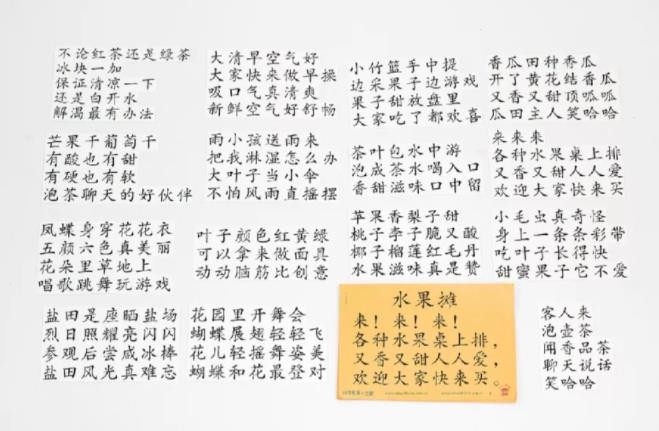 不论红茶还是绿茶
冰块一加
保证清凉一下
还是白开水
解渴最有办法
大清早空气好
大家快来做早操
吸口气真清爽
新鲜空气好舒畅
小竹篮手中提
边采果子边游戏
果子甜放盘里
大家吃了都欢喜
香瓜田种香瓜
开了黄花结香瓜
又香又甜顶呱呱
瓜田主人笑哈哈
芒果干葡萄干
有酸也有甜
有硬也有软
泡茶聊天的好伙伴
雨小孩送雨来
把我淋湿怎么办
大叶子当小伞
不怕风雨直摇摆
茶叶包水中游
泡成茶水喝入口
香甜滋味口中留
来来来
各种水果桌上排
又香又甜人人爱
欢迎大家快来买
凤蝶身穿花花衣
五颜六色真美丽
花朵里草地上
唱歌跳舞玩游戏
叶子颜色红黄绿
可以拿来做面具
动动脑筋比创意
苹果香梨子甜
桃子李子脆又酸
椰子榴莲红毛丹
水果滋味真是赞
小毛虫真奇怪
身上一条条彩带
吃叶子长得快
甜蜜果子它不爱
盐田是座晒盐场
烈日照耀亮闪闪
参观后尝咸冰棒
盐田风光真难忘
花园里开舞会
蝴蝶展翅轻轻飞
花儿轻摇舞姿美
蝴蝶和花最登对
水果摊
来！来！来！
各种水果桌上排，
又香又甜人人爱，
欢迎大家快来买。
客人来
泡壶茶
闻香品茶
聊天说话
笑哈哈